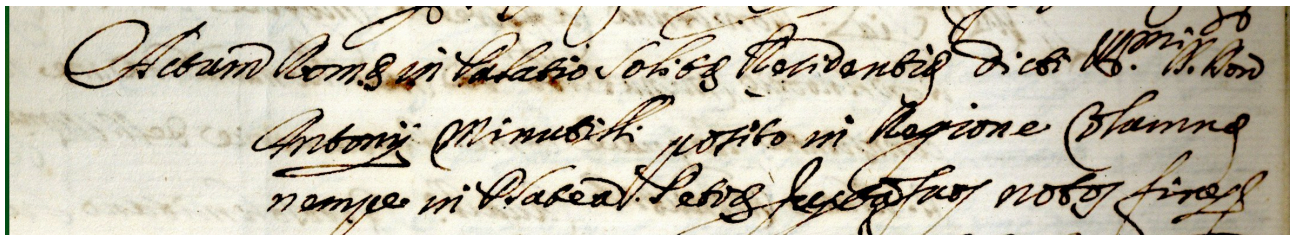 Actum Romæ in Palatio Solitæ Residentiæ dicti Ill.mi D. Don
Antonij Minutilli posito in Regione Columnæ
nempe in Platea Petræ juxta suos notos fines